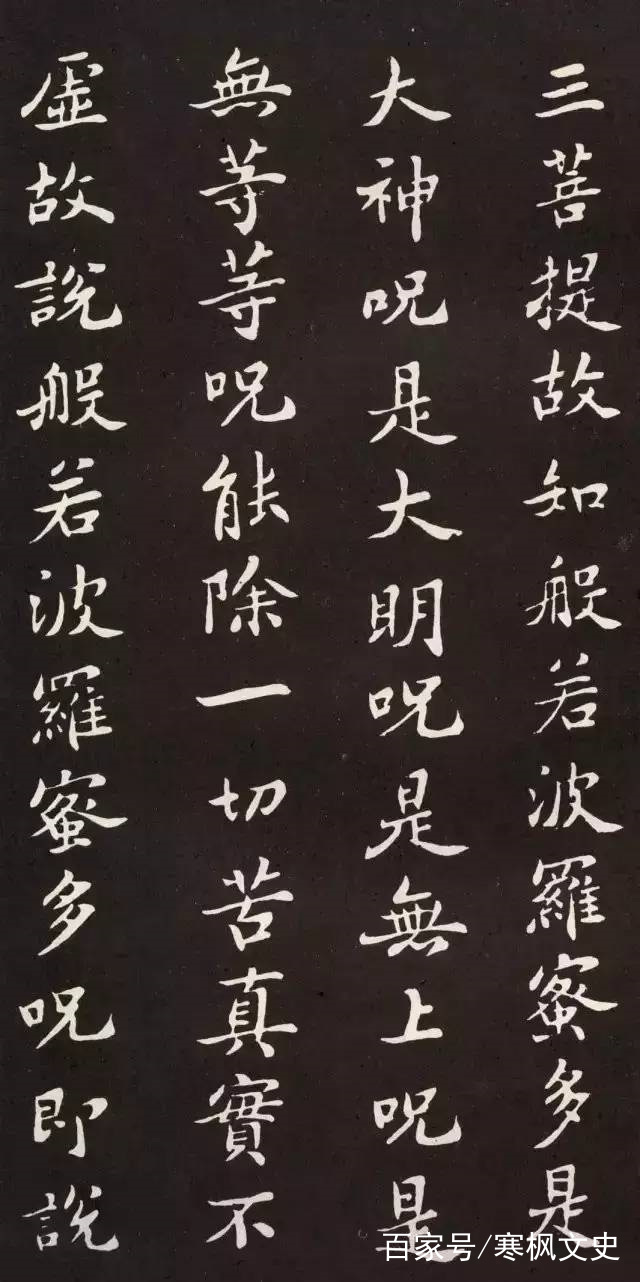 三菩提故知般若波羅蜜多是
大神呪是大明呪是無上呪是
無等等呪能除一切苦真實不
虛故說般若波羅蜜多呪即說
百家号/寒枫文史